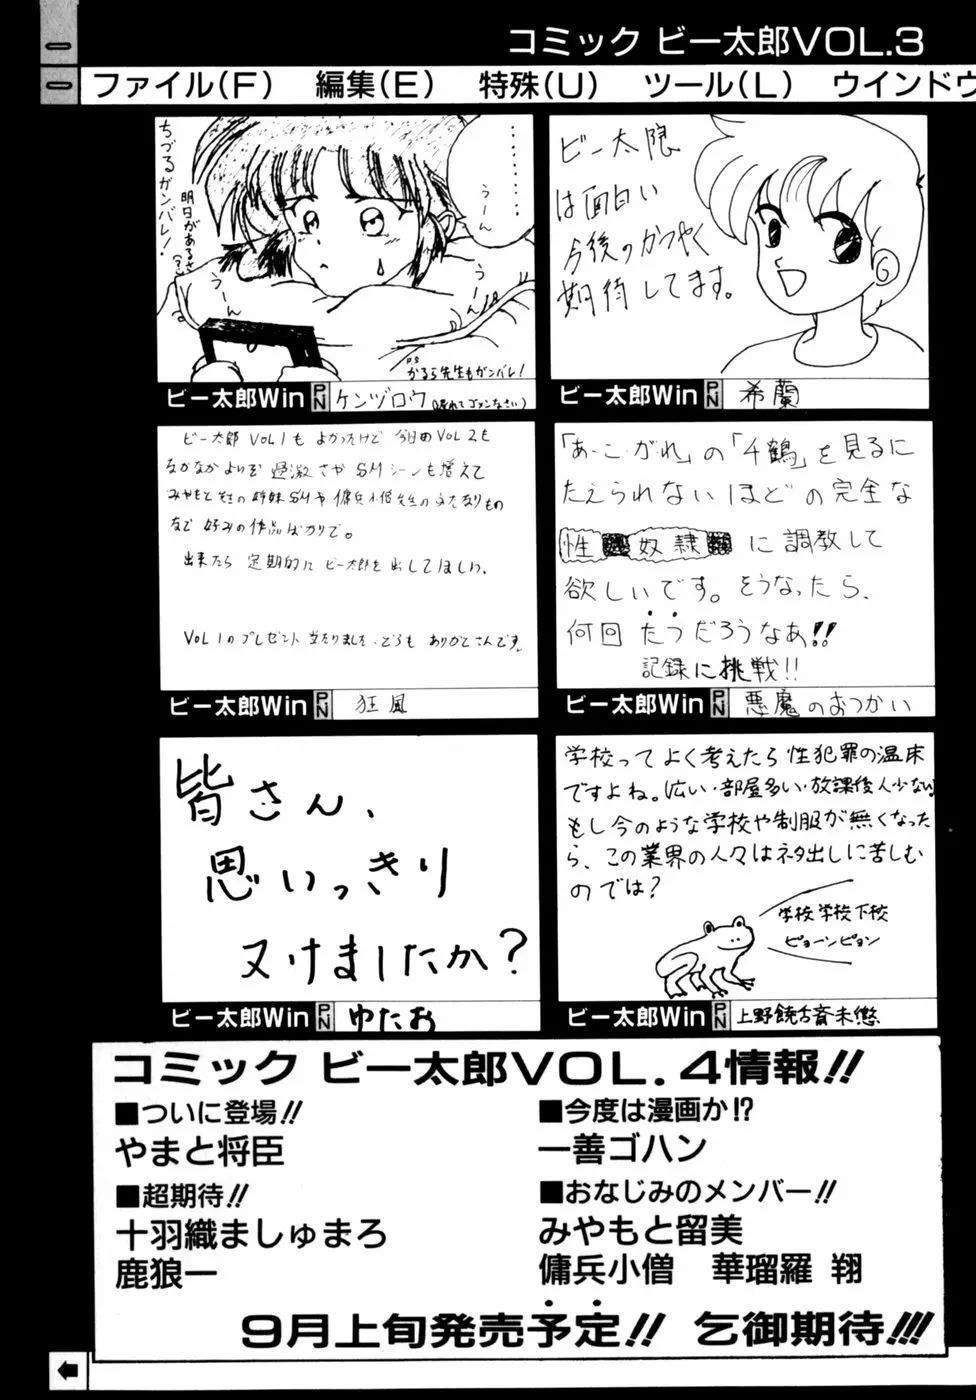 コミック ビー太郎VOL.3
ファイル(F) 編集(E) 特殊(U) ツール(L) ウインドウ
ちづるガンバレ!
明日があるさ
うーん
うーん
うーん
P.S
かるら先生もガンバレ!
ビー太郎Win PN ケンヅロウ(遅れてゴメンなさい)
ビー太限
は面白い
今後のかつやく
期待してます。
ビー太郎Win PN 希蘭
ビー太郎 VOL1も よかったけど 今回のVOL2も
なかなかよいぞ 過激さや SMシーンも増えて
みやもと先生の姉妹SMや 傭兵小僧先生のふたなりもの
など 好みの作品ばかりで。
出来たら 定期的に ビー太郎を出してほしい。
VOL1のプレゼント 当たりました、どうも ありがとさんです。
ビー太郎Win PN 狂風
「あ・こ・がれ」の「千鶴」を見るに
たえられないほどの完全な
性 奴隷 に調教して
欲しいです。そうなったら、
何回 たつだろうなあ!!
記録に挑戦!!
ビー太郎Win PN 悪魔のおつかい
皆さん、
思いっきり
ヌけましたか?
ビー太郎Win PN ゆたお
学校って よく考えたら 性犯罪の温床
ですよね。広い・部屋多い・放課後人少ない
もし今のような学校や制服が無くなった
ら、この業界の人々はネタ出しに苦しむ
のでは?
学校学校下校
ピョーンピョン
ビー太郎Win PN 上野饒舌斎未悠
コミック ビー太郎VOL.4情報!!
■ついに登場!!
やまと将臣
■超期待!!
十羽織ましゅまろ
鹿狼一
■今度は漫画か!?
一善ゴハン
■おなじみのメンバー!!
みやもと留美
傭兵小僧 華瑠羅 翔
9月上旬発売予定!! 乞御期待!!!